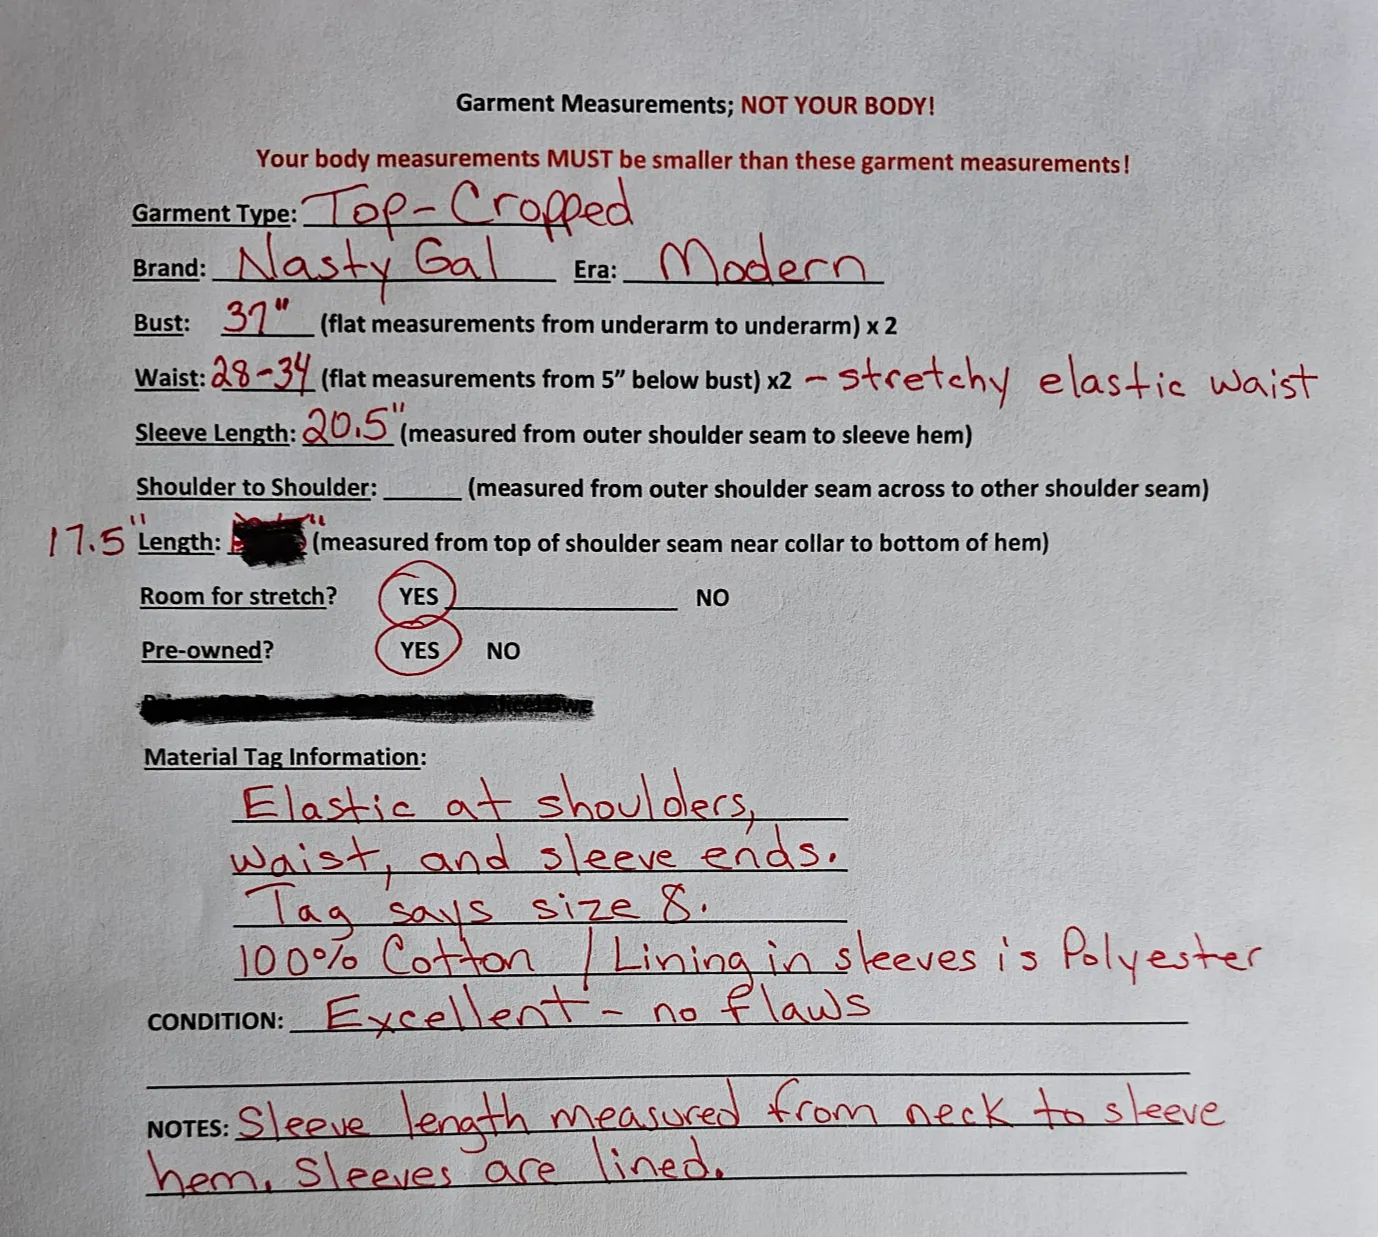 Garment Measurements; NOT YOUR BODY!
Your body measurements MUST be smaller than these garment measurements!
Garment Type: Top-Cropped
Brand: Nasty Gal Era: Modern
Bust: 37" (flat measurements from underarm to underarm) x 2
Waist: 28-34 (flat measurements from 5” below bust) x2 - stretchy elastic waist
Sleeve Length: 20.5" (measured from outer shoulder seam to sleeve hem)
Shoulder to Shoulder: ______ (measured from outer shoulder seam across to other shoulder seam)
17.5" Length: " (measured from top of shoulder seam near collar to bottom of hem)
Room for stretch? YES NO
Pre-owned? YES NO
Material Tag Information:
Elastic at shoulders,
waist, and sleeve ends.
Tag says size 8.
100% Cotton / Lining in sleeves is Polyester
CONDITION: Excellent - no flaws
NOTES: Sleeve length measured from neck to sleeve
hem. Sleeves are lined.